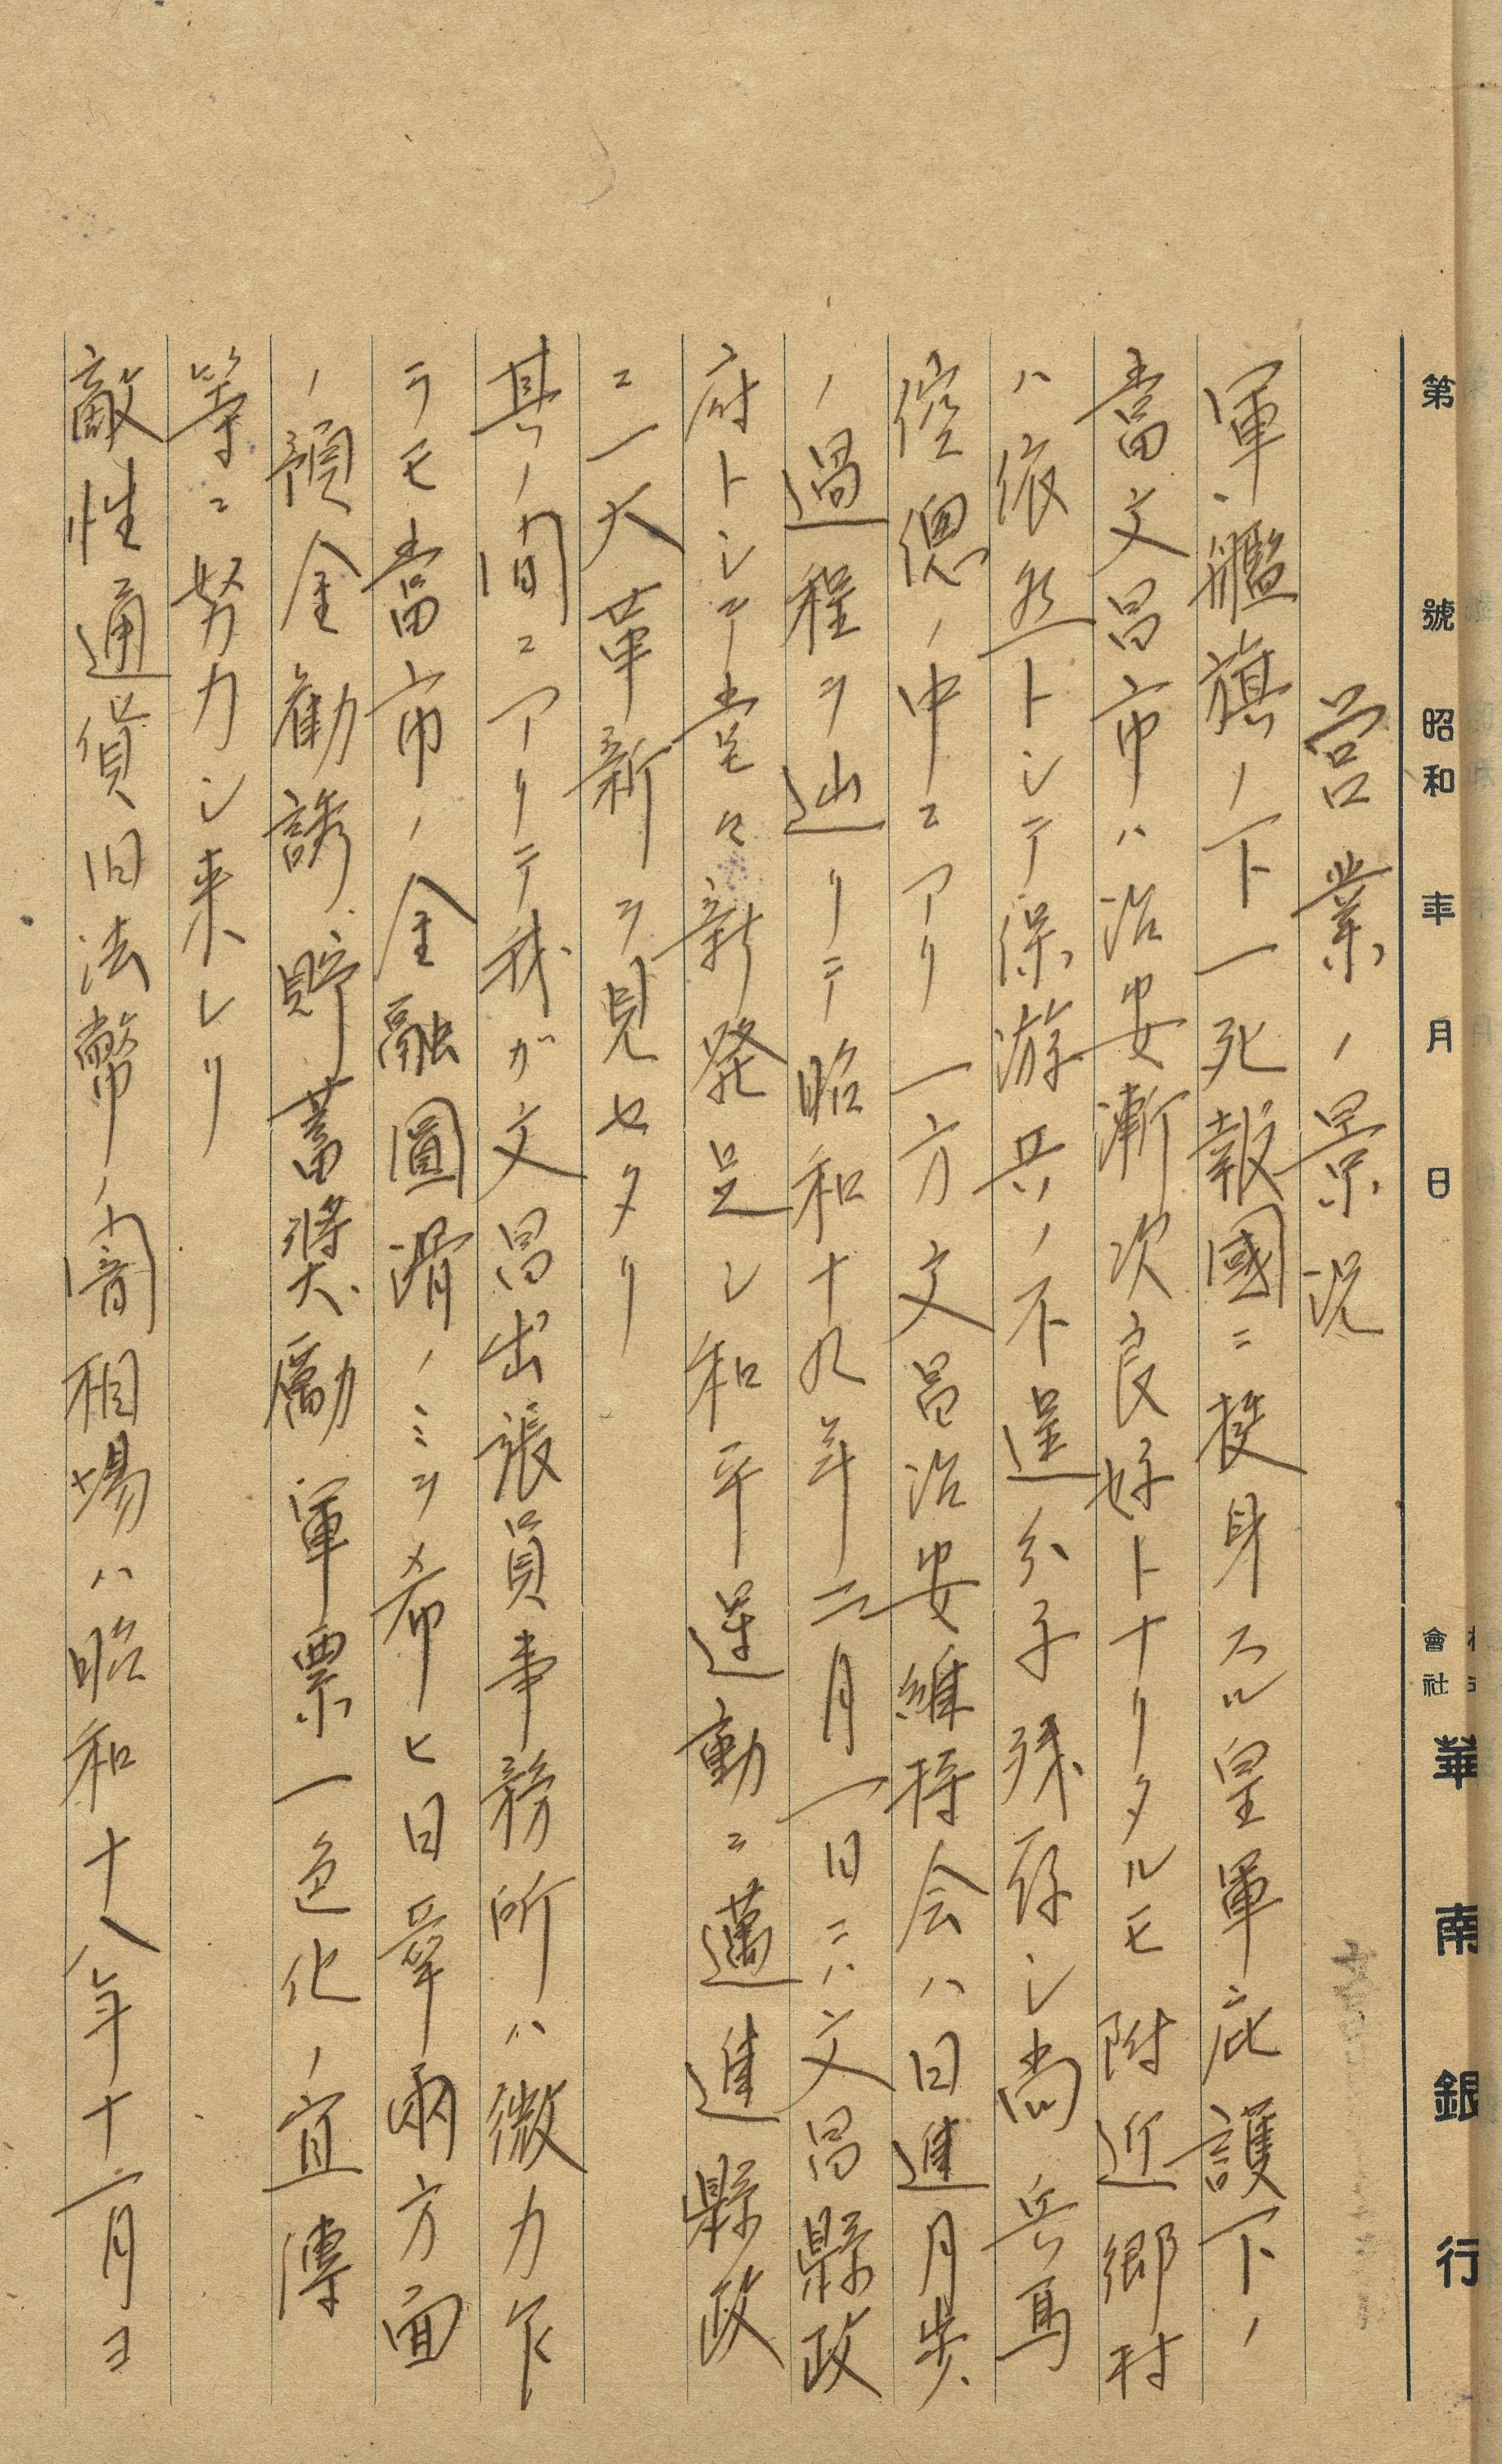 第 號 昭和 年 月 日 會社 華南銀行
営業ノ景況
軍艦旗ノ下一死報國ニ挺身スル皇軍庇護下ノ
當文昌市ハ治安漸次良好トナリタルモ附近郷村
ハ依然トシテ保游兵ノ不逞分子残存シ尚兵馬
倥偬ノ中ニアリ一方文昌治安維持会ハ日進月歩
ノ過程ヲ辿リテ昭和十九年二月一日ニハ文昌縣政
府トシテ堂々新発足シ和平運動ニ邁進縣政
ニ一大革新ヲ見セタリ
其ノ間ニアリテ我ガ文昌出張員事務所ハ微力乍
ラモ當市ノ金融圓滑ノミヲ希ヒ日華兩方面
ノ預金勧誘貯蓄奬勵軍票一色化ノ宣傳
等ニ努力シ来レリ
敵性通貨旧法幣ノ闇相場ハ昭和十八年十一月ヨ